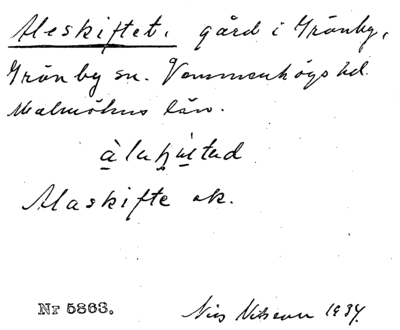 Aleskiftet. gård i Grönby,
Grönby sn. Vemmenhögs hd.
Malmöhus län.
Alaskifte ek.
Nr 5863. Nils Nilsson 1934.